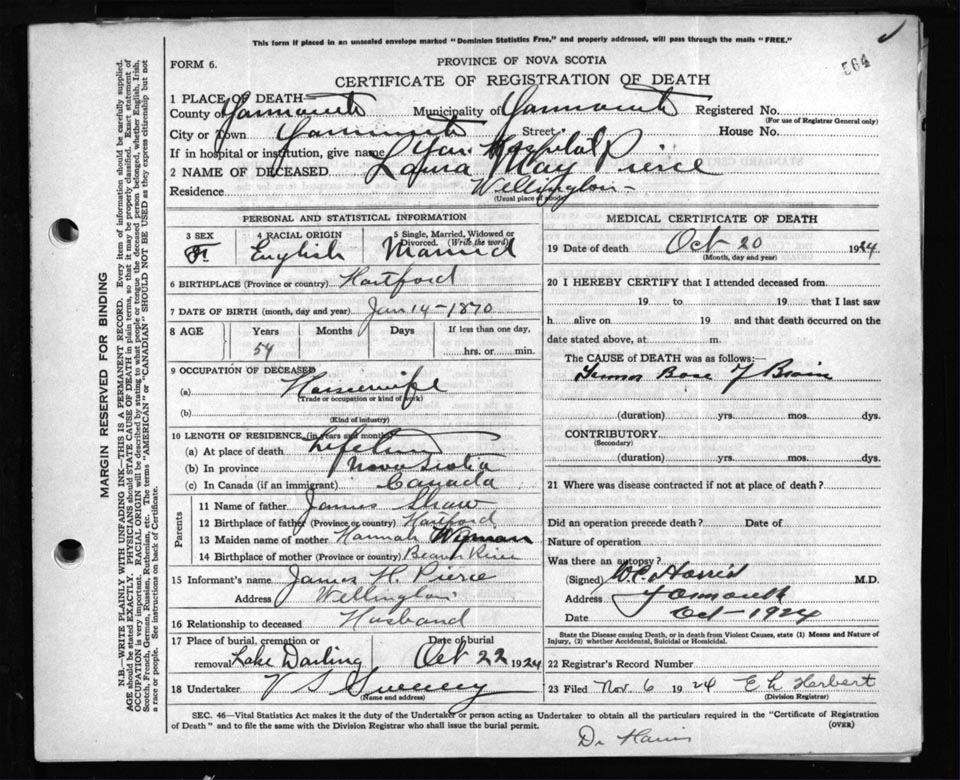 This form if placed in an unsealed envelope marked "Dominion Statistics Free," and properly addressed, will pass through the mails "FREE."
564
FORM 6.
PROVINCE OF NOVA SCOTIA
CERTIFICATE OF REGISTRATION OF DEATH
1 PLACE OF DEATH—
County of Yarmouth Municipality of Yarmouth Registered No.
(For use of Registrar General only)
City or Town Yarmouth Street House No.
If in hospital or institution, give name Yar. Hospital
2 NAME OF DECEASED Laura May Pierce
Residence Wellington -
(Usual place of abode)
PERSONAL AND STATISTICAL INFORMATION
3 SEX 4 RACIAL ORIGIN 5 Single, Married, Widowed or Divorced. (Write the word)
F English Married
6 BIRTHPLACE (Province or country) Hartford
7 DATE OF BIRTH (month, day and year) Jan 14 - 1870
8 AGE Years Months Days If less than one day,
54 hrs. or min.
9 OCCUPATION OF DECEASED
(a) Housewife
(Trade or occupation or kind of work)
(b)
(Kind of industry)
10 LENGTH OF RESIDENCE (in years and months)
(a) At place of death Lifetime
(b) In province Nova Scotia
(c) In Canada (if an immigrant) Canada
Parents
11 Name of father James Shaw
12 Birthplace of father (Province or country) Hartford
13 Maiden name of mother Hannah Wyman
14 Birthplace of mother (Province or country) Beaver River
15 Informant's name James H. Pierce
Address Wellington
16 Relationship to deceased Husband
17 Place of burial, cremation or removal Lake Darling Date of burial Oct 22 1924
18 Undertaker V S Sweeney
(Name and address)
MEDICAL CERTIFICATE OF DEATH
19 Date of death Oct 20 1924
(Month, day and year)
20 I HEREBY CERTIFY that I attended deceased from
19 to 19 that I last saw
h alive on 19 and that death occurred on the
date stated above, at m.
The CAUSE OF DEATH was as follows:—
Tumor Base of Brain
(duration) yrs. mos. dys.
CONTRIBUTORY
(Secondary)
(duration) yrs. mos. dys.
21 Where was disease contracted if not at place of death?
Did an operation precede death? Date of
Nature of operation
Was there an autopsy?
(Signed) Harris M.D.
Address Yarmouth
Date Oct - 1924
State the Disease causing Death, or in death from Violent Causes, state (1) Means and Nature of
Injury, (2) whether Accidental, Suicidal or Homicidal.
22 Registrar's Record Number
23 Filed Nov. 6 1924 E L Herbert
(Division Registrar)
SEC. 46—Vital Statistics Act makes it the duty of the Undertaker or person acting as Undertaker to obtain all the particulars required in the "Certificate of Registration
of Death" and to file the same with the Division Registrar who shall issue the burial permit. (OVER)
Dr Harris
MARGIN RESERVED FOR BINDING
N.B.—WRITE PLAINLY WITH UNFADING INK—THIS IS A PERMANENT RECORD. Every item of information should be carefully supplied.
AGE should be stated EXACTLY. PHYSICIANS should STATE CAUSE OF DEATH in plain terms, so that it may be properly classified. Exact statement of
OCCUPATION is very important. RACIAL ORIGIN will be described by stating to what people or tongue the deceased person belonged, whether English, Irish,
Scotch, French, German, Russian, Ruthenian, etc. The terms "AMERICAN" or "CANADIAN" SHOULD NOT BE USED as they express citizenship but not
a race or people. See instructions on back of Certificate.